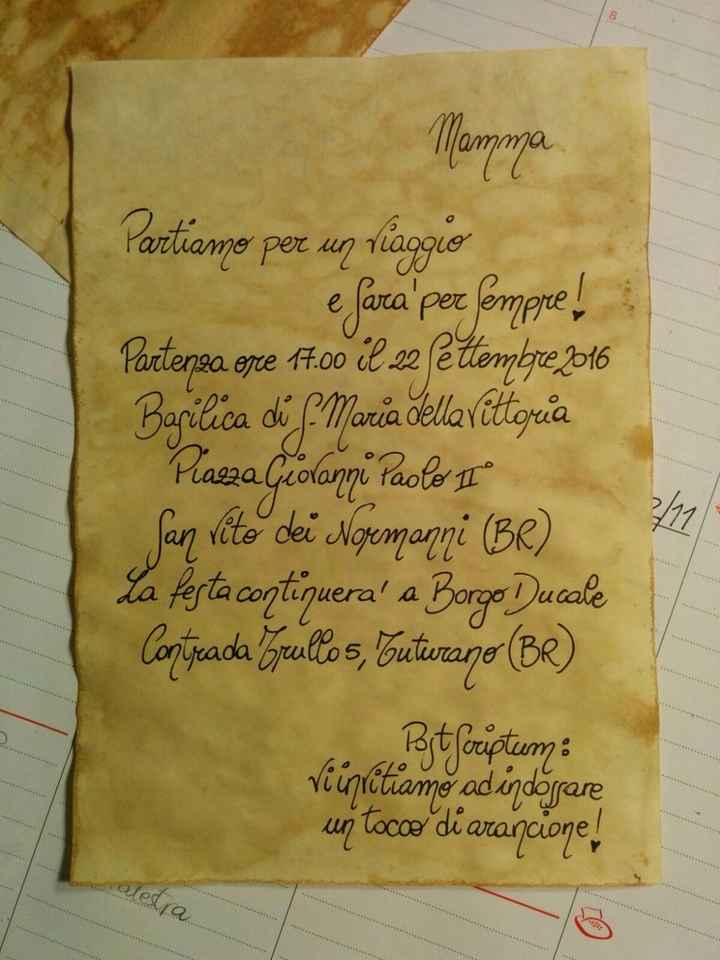 6
Mamma
Partiamo per un viaggio
e sarà per sempre!
Partenza ore 17.00 il 22 Settembre 2016
Basilica di S. Maria della Vittoria
Piazza Giovanni Paolo II°
San Vito dei Normanni (BR)
/11
La festa continuera' a Borgo Ducale
Contrada Trullo 5, Tuturano (BR)
Post Scriptum:
vi invitiamo ad indossare
un tocco di arancione!